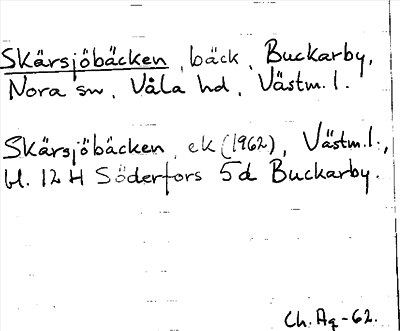 Skärsjöbäcken, bäck, Buckarby,
Nora sn, Våla hd, Västm. l.
Skärsjöbäcken, ek (1962), Västm. l.,
bl. 12 H Söderfors 5d Buckarby.
Ch. Ag -62.